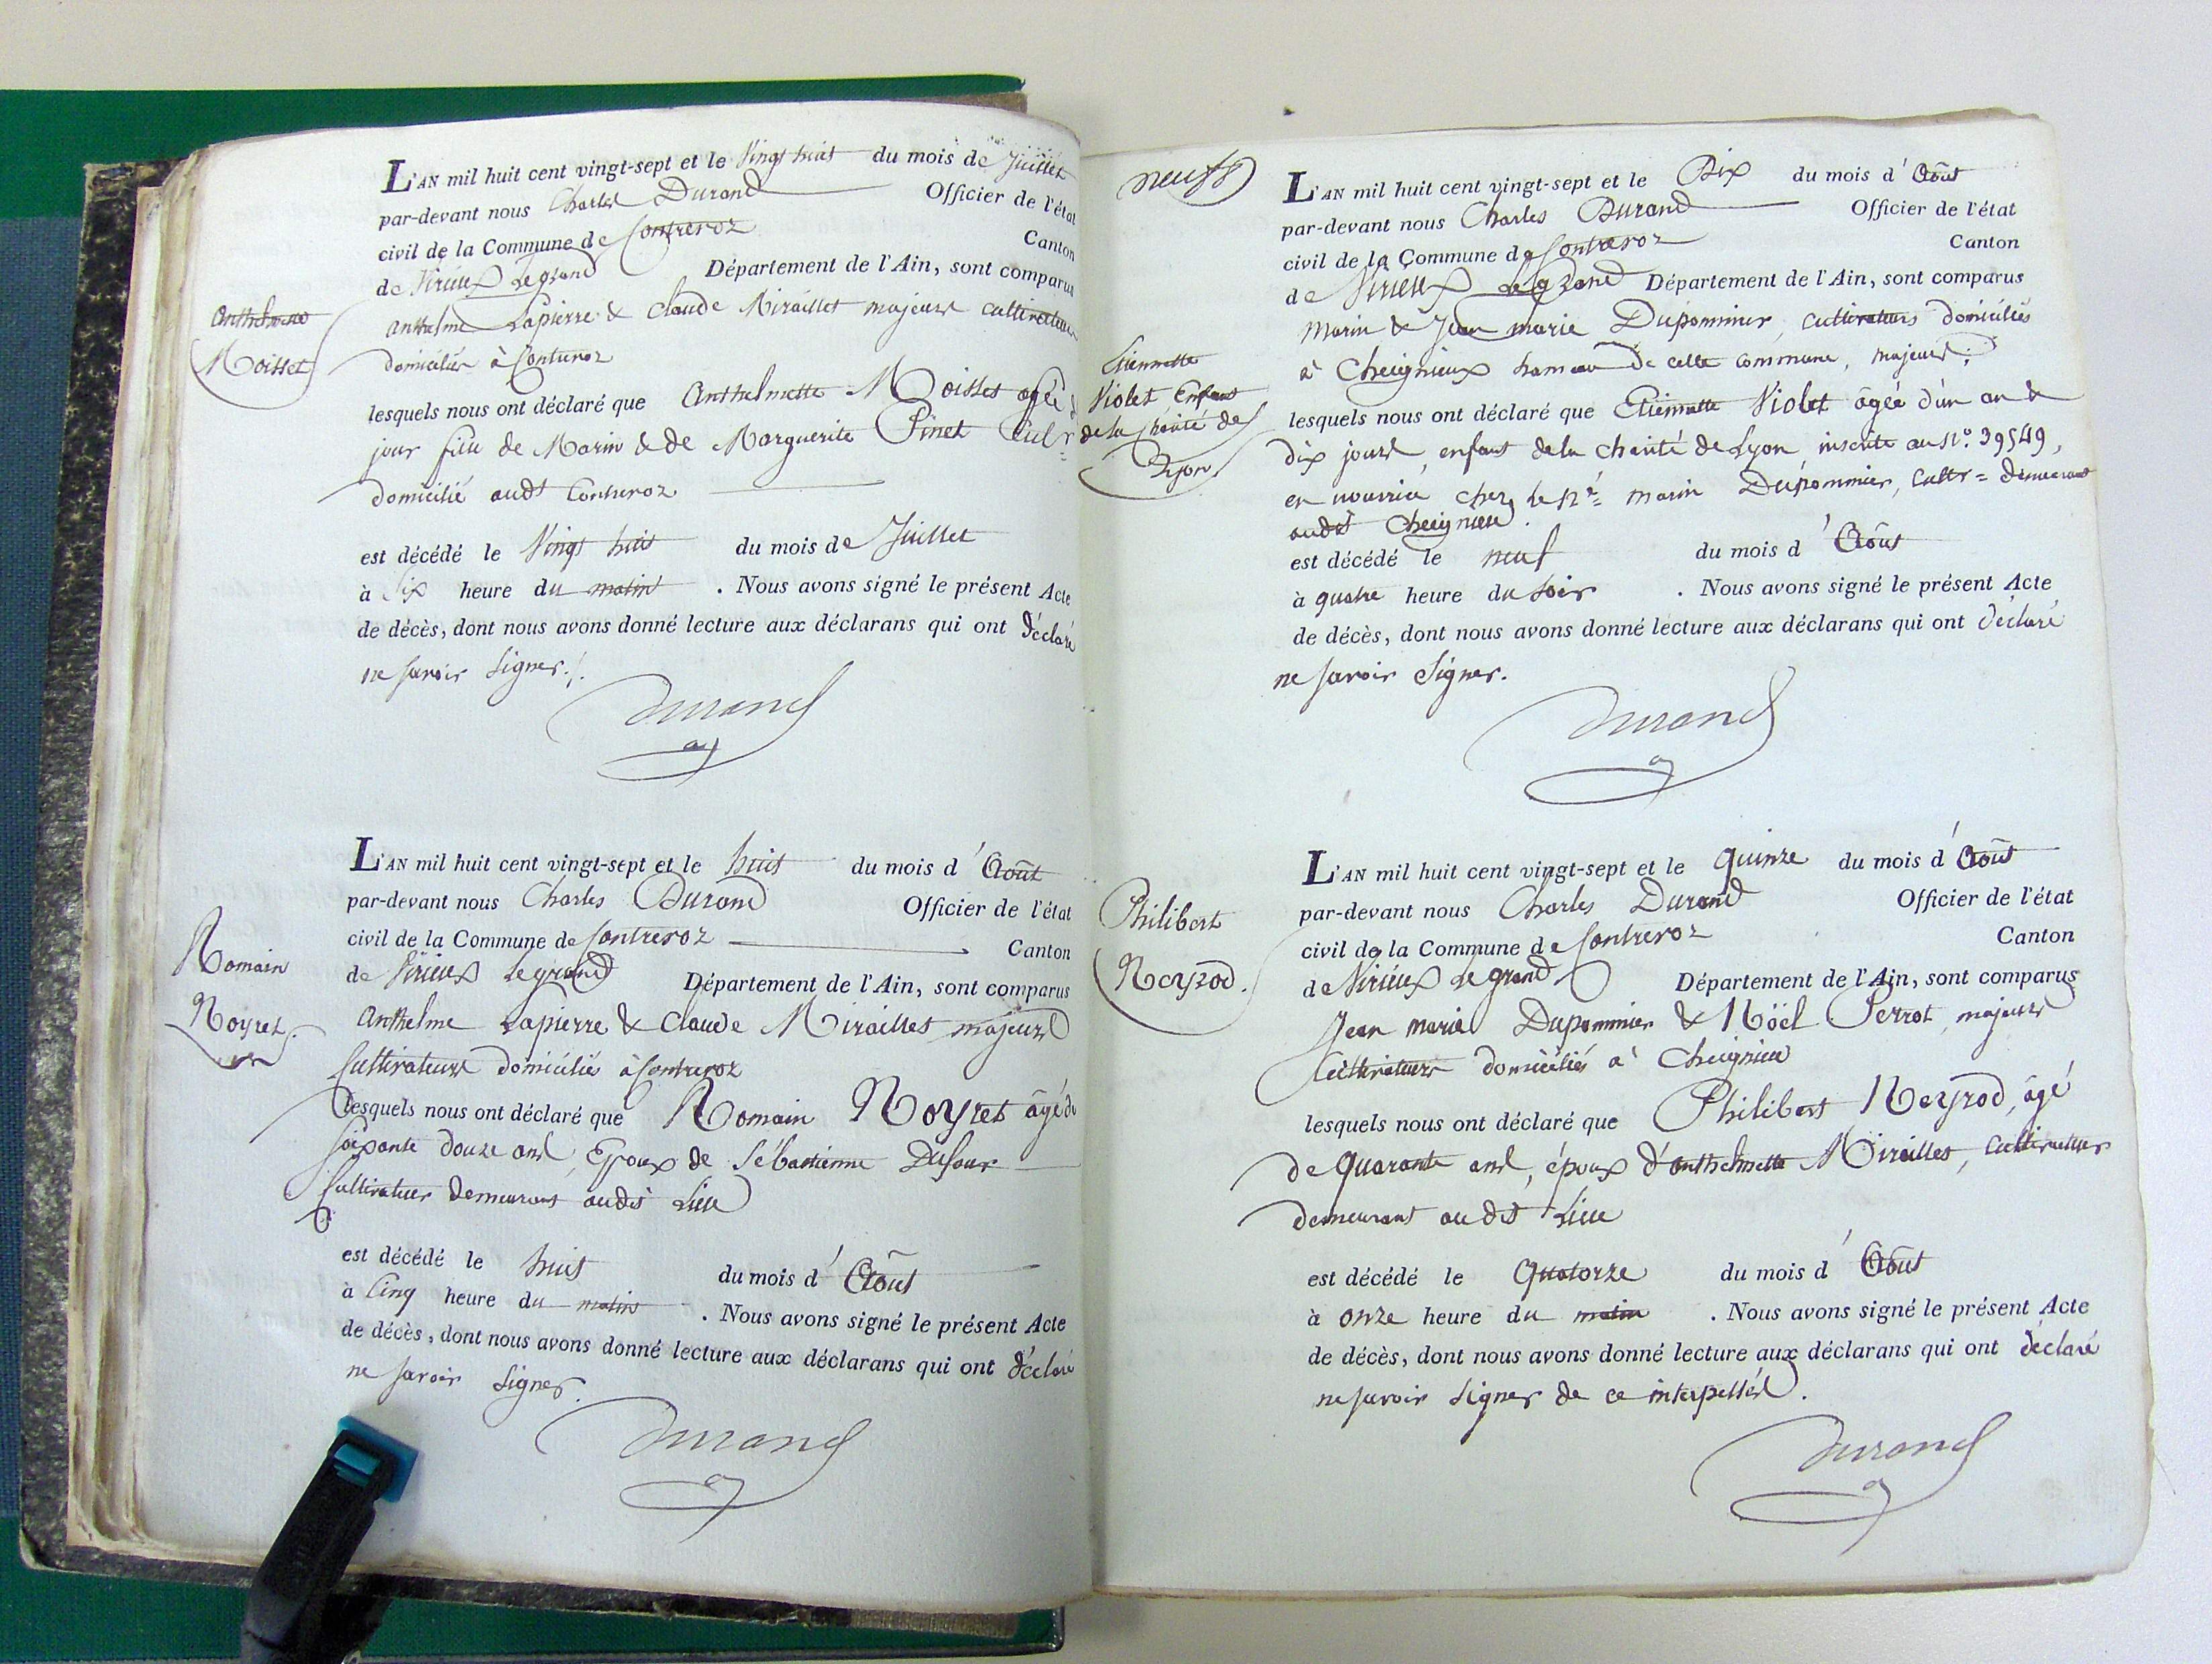 L'AN mil huit cent vingt-sept et le Vingt huit du mois de Juillet
par-devant nous Charles Durand Officier de l'état
civil de la Commune de Contrevoz Canton
de Virieux Legrand Département de l'Ain, sont comparus
anthelme Lapierre & Claude Miraillet majeurs cultivateurs
domiciliés à Contrevoz
lesquels nous ont déclaré que Anthelmette Moisset agée
jour fille de Marin & de Marguerite Pinet Cultr
domicilié audt Contrevoz
est décédé le Vingt huit du mois de Juillet
à Six heure du matin . Nous avons signé le présent Acte
de décès, dont nous avons donné lecture aux déclarans qui ont déclaré
ne savoir Signer./.
Durand
Moisset
L'AN mil huit cent vingt-sept et le huit du mois d'Août
par-devant nous Charles Durand Officier de l'état
civil de la Commune de Contrevoz Canton
de Virieux Legrand Département de l'Ain, sont comparus
Anthelme Lapierre & Claude Miraillet majeurs
Cultivateurs domicilié à Contrevoz
lesquels nous ont déclaré que Romain Noyret âgé de
soixante douze ans, Epoux de Sébastienne Dufour
Cultivateur demeurant audit Lieu
est décédé le huit du mois d'Août
à Cinq heure du matin . Nous avons signé le présent Acte
de décès, dont nous avons donné lecture aux déclarans qui ont déclaré
ne savoir Signer.
Durand
Romain
Noyret.
neuf
L'AN mil huit cent vingt-sept et le Dix du mois d'Août
par-devant nous Charles Durand Officier de l'état
civil de la Commune de Contrevoz Canton
de Virieux Legrand Département de l'Ain, sont comparus
Marin & Jean marie Dupommier, cultivateurs domiciliés
à Cheignieux hameau de cette commune, majeurs;
lesquels nous ont déclaré que Etiennette Violet âgée d'un an &
dix jours, enfant de la charité de Lyon inscrite au N°. 39549,
en nourrice chez le né marin Dupommier, Cultr = demeurant
audit Cheignieu.
est décédé le neuf du mois d'Août
à quatre heure du Soir . Nous avons signé le présent Acte
de décès, dont nous avons donné lecture aux déclarans qui ont déclaré
ne savoir Signer.
Durand
Etiennette
Violet Enfant
de la charité de
Lyon
L'AN mil huit cent vingt-sept et le quinze du mois d'Août
par-devant nous Charles Durand Officier de l'état
civil de la Commune de Contrevoz Canton
de Virieux Legrand Département de l'Ain, sont comparus
Jean marie Dupommier & Nöel Perrot, majeurs
Cultivateurs domiciliés à Cheignieu
lesquels nous ont déclaré que Philibert Neyrod, âgé
de quarante ans, époux d'anthelmette Miraillet, Cultivateur
demeurant audit Lieu
est décédé le quatorze du mois d'Août
à onze heure du matin . Nous avons signé le présent Acte
de décès, dont nous avons donné lecture aux déclarans qui ont déclaré
ne savoir Signer de ce interpellés.
Durand
Philibert
Neyrod.